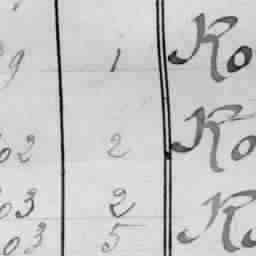 9 1 Ko
02 2 Ko
03 2 K
03 5